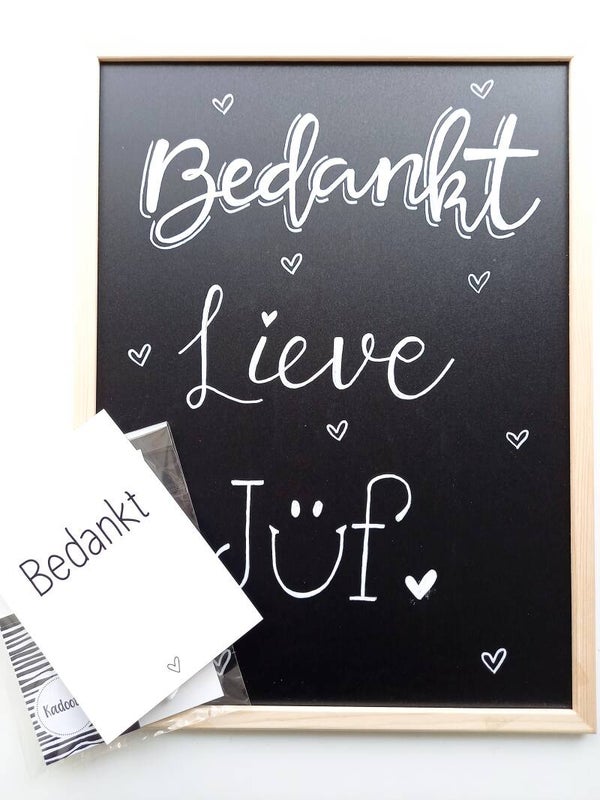 Bedankt
Lieve
Jüf
Bedankt